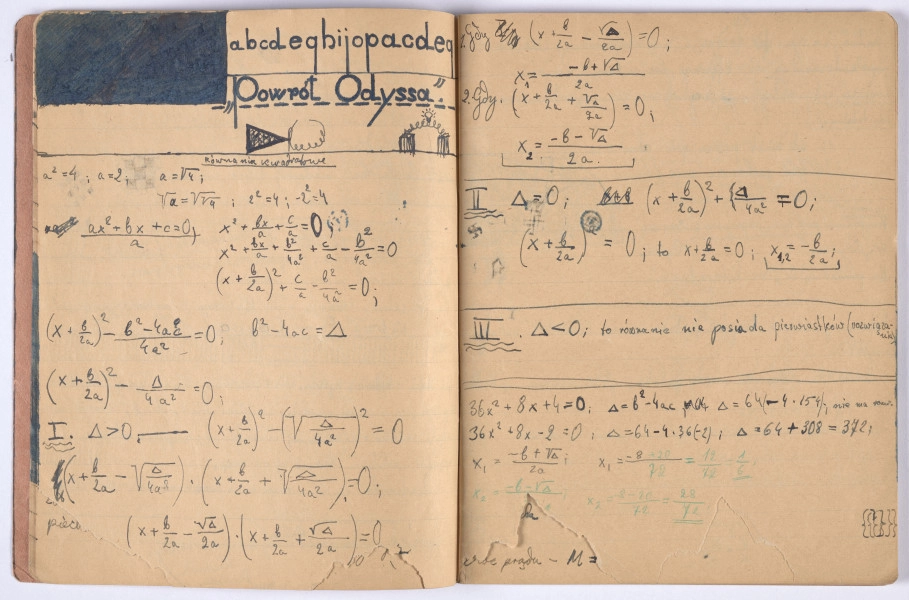 abcdeghijopacdeg
„Powrót Odyssa”.
równania kwadratowe
a²=4; a=2; a=√4;
√a=√√4; 2²=4; -2²=4
ax²+bx+c=0 / a
x² + bx/a + c/a = 0
x² + bx/a + b²/4a² + c/a - b²/4a² = 0
(x + b/2a)² + c/a - b²/4a² = 0;
(x + b/2a)² - b²-4ac/4a² = 0; b²-4ac = Δ
(x + b/2a)² - Δ/4a² = 0;
I. Δ>0. (x + b/2a)² - (√Δ/4a²)² = 0
(x + b/2a - √Δ/4a²) · (x + b/2a + √Δ/4a²) = 0;
(x + b/2a - √Δ/2a) · (x + b/2a + √Δ/2a) = 0
1. Gdy (x + b/2a - √Δ/2a) = 0;
x₁ = -b+√Δ / 2a
2. Gdy. (x + b/2a + √Δ/2a) = 0;
x₂ = -b-√Δ / 2a.
II Δ=0; (x + b/2a)² + Δ/4a² = 0;
(x + b/2a)² = 0; to x + b/2a = 0; x₁,₂ = -b/2a;
III. Δ<0; to równanie nie posiada pierwiastków (rozwiązania)
36x²+8x+4=0; Δ=b²-4ac Δ=64(-4·154); nie ma rozw.
36x²+8x-2=0; Δ=64-4·36(-2); Δ=64+308=372;
x₁ = -b+√Δ / 2a; x₁ = -8+20 / 72 = 12/72 = 1/6
x₂ = -b-√Δ x₂ = -8-20 / 72 = 28/72
prądu - M =